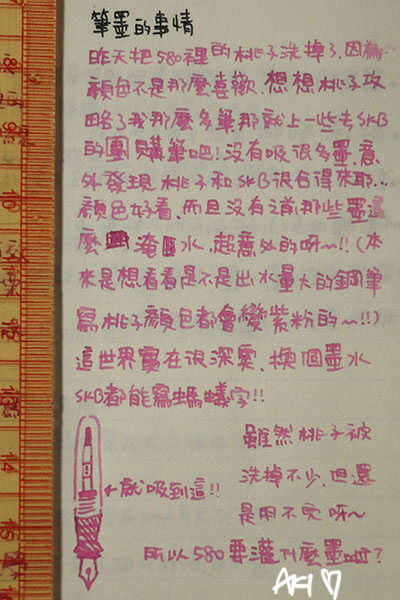 筆墨的事情
昨天把580裡的桃子洗掉了,因為
顏色不是那麼喜歡,想想桃子攻
略了我那麼多筆那就上一些去SKB
的團購筆吧!沒有吸很多墨,意
外發現桃子和SKB很合得來耶...
顏色好看、而且沒有之前那些墨這
麼 淹 水,超意外的呀~!!(本
來是想看看是不是出水量大的鋼筆
寫桃子顏色都會變紫粉的~!!)
這世界實在很深奧、換個墨水
SKB都能寫螞蟻字!!
雖然桃子被
洗掉不少,但還
是用不完呀~
←就吸到這!!
所以580要灌什麼墨呢?
AKI♡
14
15